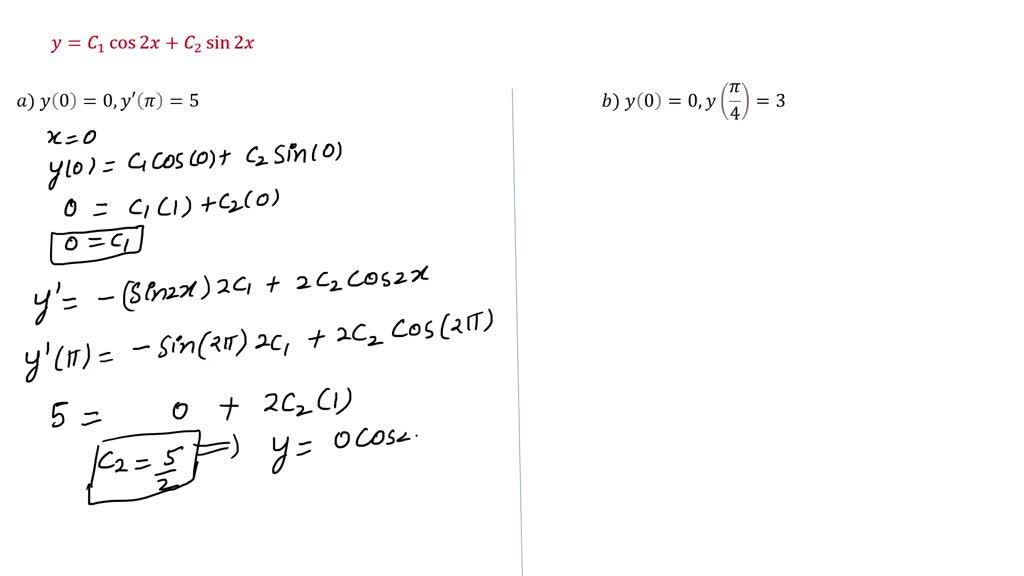 y = C₁ cos 2x + C₂ sin 2x
a) y(0) = 0, y′(π) = 5
x = 0
y(0) = C₁ cos(0) + C₂ Sin(0)
0 = C₁(1) + C₂(0)
0 = C₁
y' = -(Sin2x) 2C₁ + 2C₂ Cos2x
y'(π) = - Sin(2π) 2C₁ + 2C₂ Cos(2π)
5 = 0 + 2C₂(1)
C₂ = 5/2 ⇒ y = 0 Cos2
b) y(0) = 0, y(π/4) = 3